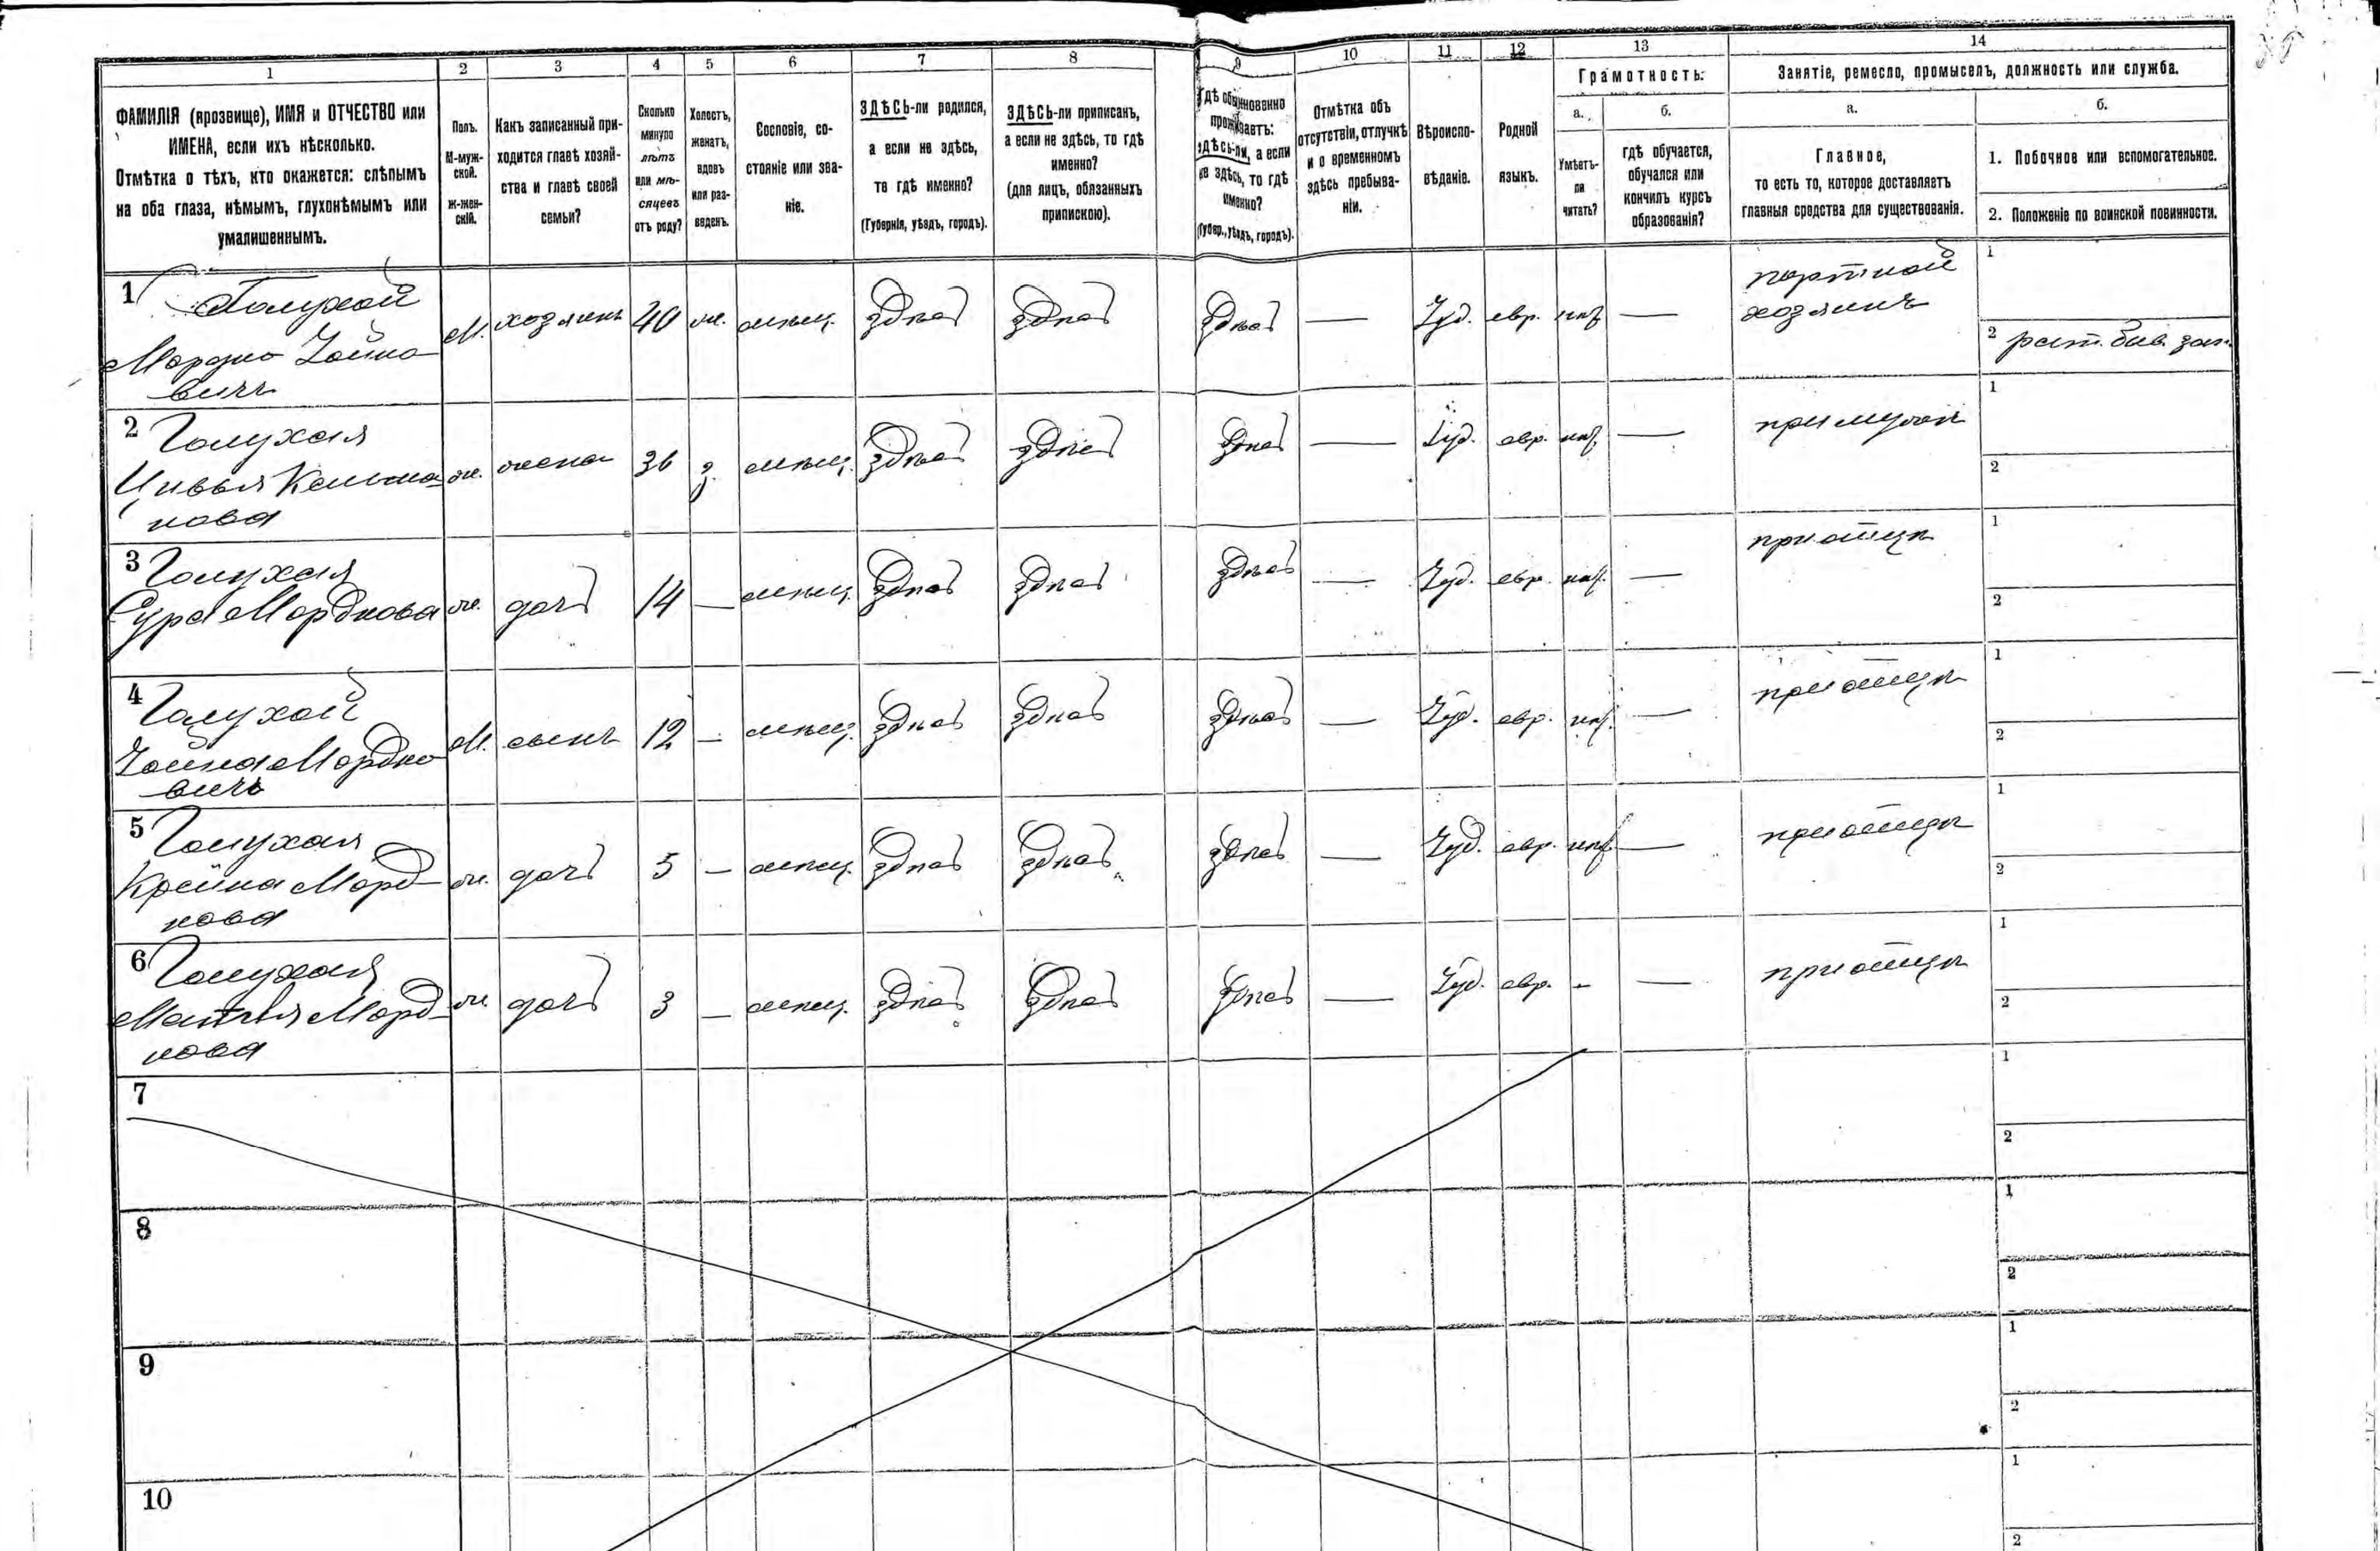 1 2 3 4 5 6 7 8 9 10 11 12 13 14
ФАМИЛІЯ (прозвище), ИМЯ и ОТЧЕСТВО или
ИМЕНА, если ихъ нѣсколько.
Отмѣтка о тѣхъ, кто окажется: слѣпымъ
на оба глаза, нѣмымъ, глухонѣмымъ или
умалишеннымъ.
Полъ.
М-муж-
ской.
Ж-жен-
скій.
Какъ записанный при-
ходится главѣ хозяй-
ства и главѣ своей
семьи?
Сколько
минуло
лѣтъ
или мѣ-
сяцевъ
отъ роду?
Холостъ,
женатъ,
вдовъ
или раз-
веденъ.
Сословіе, со-
стояніе или зва-
ніе.
ЗДѢСЬ-ли родился,
а если не здѣсь,
то гдѣ именно?
(Губернія, уѣздъ, городъ).
ЗДѢСЬ-ли приписанъ,
а если не здѣсь, то гдѣ
именно?
(для лицъ, обязанныхъ
припискою).
Гдѣ обыкновенно
проживаетъ:
здѣсь-ли, а если
не здѣсь, то гдѣ
именно?
(Губер., уѣздъ, городъ).
Отмѣтка объ
отсутствіи, отлучкѣ
и о временномъ
здѣсь пребыва-
ніи.
Вѣроиспо-
вѣданіе.
Родной
языкъ.
Грамотность:
а.
Умѣетъ-
ли
читать?
б.
гдѣ обучается,
обучался или
кончилъ курсъ
образованія?
Занятіе, ремесло, промыселъ, должность или служба.
а.
Главное,
то есть то, которое доставляетъ
главныя средства для существованія.
б.
1. Побочное или вспомогательное.
2. Положеніе по воинской повинности.
1 Голухой
Мордко Хаймо
вичъ
М. хозяинъ 40 ж. мѣщ. здѣсь здѣсь здѣсь — Іуд. евр. — портной
хозяинъ
1
2 рат.
2 Голухая
Цивья Кельма
нова
ж. жена 36 з. мѣщ. здѣсь здѣсь здѣсь — Іуд. евр. — при мужѣ
1
2
3 Голухая
Сура Мордкова
ж. дочь 14 — мѣщ. здѣсь здѣсь здѣсь — Іуд. евр. — при отцѣ
1
2
4 Голухой
Мордко
вичъ
М. сынъ 12 — мѣщ. здѣсь здѣсь здѣсь — Іуд. евр. — при отцѣ
1
2
5 Голухая
Крейна Морд
кова
ж. дочь 5 — мѣщ. здѣсь здѣсь здѣсь — Іуд. евр. — при отцѣ
1
2
6 Голухая
Морд
кова
ж. дочь 3 — мѣщ. здѣсь здѣсь здѣсь — Іуд. евр. - — при отцѣ
1
2
7
1
2
8
1
2
9
1
2
10
1
2